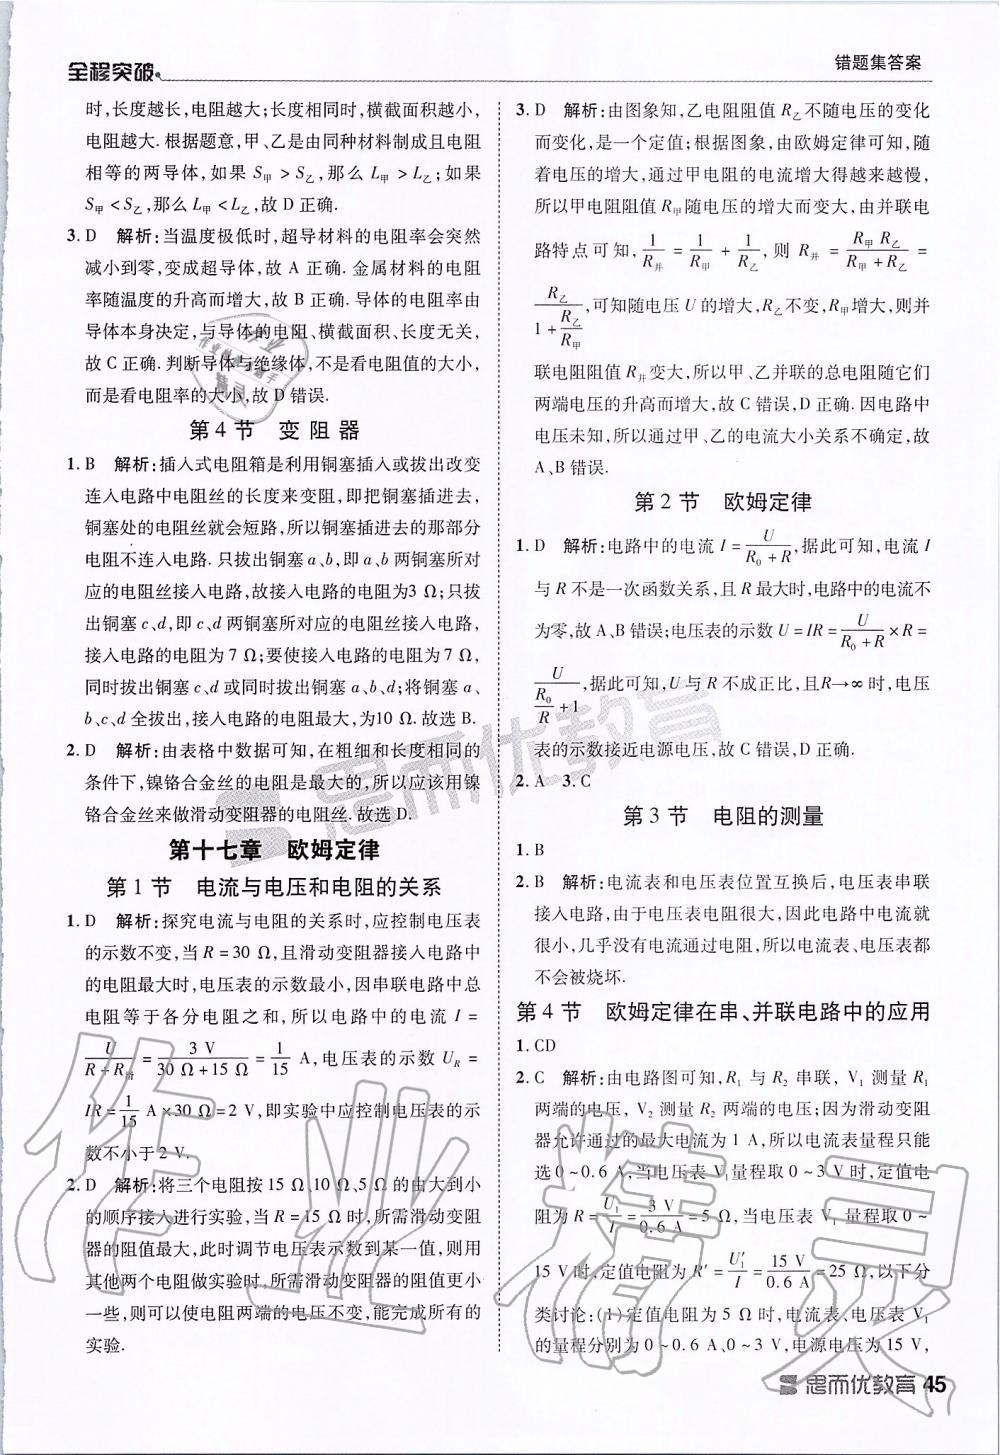 全程突破
错题集答案
时,长度越长,电阻越大;长度相同时,横截面积越小,
电阻越大. 根据题意,甲、乙是由同种材料制成且电阻
相等的两导体,如果 S甲 > S乙,那么 L甲 > L乙;如果
S甲 < S乙,那么 L甲 < L乙,故 D 正确.
3. D 解析:当温度极低时,超导材料的电阻率会突然
减小到零,变成超导体,故 A 正确. 金属材料的电阻
率随温度的升高而增大,故 B 正确. 导体的电阻率由
导体本身决定,与导体的电阻、横截面积、长度无关,
故 C 正确. 判断导体与绝缘体,不是看电阻值的大小,
而是看电阻率的大小,故 D 错误.
第 4 节 变 阻 器
1. B 解析:插入式电阻箱是利用铜塞插入或拔出改变
连入电路中电阻丝的长度来变阻,即把铜塞插进去,
铜塞处的电阻丝就会短路,所以铜塞插进去的那部分
电阻不连入电路. 只拔出铜塞 a、b,即 a、b 两铜塞所对
应的电阻丝接入电路,故接入电路的电阻为3 Ω;只拔
出铜塞 c、d,即 c、d 两铜塞所对应的电阻丝接入电路,
接入电路的电阻为 7 Ω;要使接入电路的电阻为 7 Ω,
同时拔出铜塞 c、d 或同时拔出铜塞 a、b、d;将铜塞 a、
b、c、d 全拔出,接入电路的电阻最大,为10 Ω. 故选 B.
2. D 解析:由表格中数据可知,在粗细和长度相同的
条件下,镍铬合金丝的电阻是最大的,所以应该用镍
铬合金丝来做滑动变阻器的电阻丝. 故选 D.
第十七章 欧姆定律
第 1 节 电流与电压和电阻的关系
1. D 解析:探究电流与电阻的关系时,应控制电压表
的示数不变,当 R = 30 Ω,且滑动变阻器接入电路中
的电阻最大时,电压表的示数最小,因串联电路中总
电阻等于各分电阻之和,所以电路中的电流 I =
U/(R + R滑) = 3 V/(30 Ω + 15 Ω) = 1/15 A,电压表的示数 U_R =
IR = 1/15 A × 30 Ω = 2 V,即实验中应控制电压表的示
数不小于 2 V.
2. D 解析:将三个电阻按 15 Ω、10 Ω、5 Ω 的由大到小
的顺序接入进行实验,当 R = 15 Ω 时,所需滑动变阻
器的阻值最大,此时调节电压表示数到某一值,则用
其他两个电阻做实验时,所需滑动变阻器的阻值更小
一些,则可以使电阻两端的电压不变,能完成所有的
实验.
3. D 解析:由图象知,乙电阻阻值 R乙 不随电压的变化
而变化,是一个定值;根据图象,由欧姆定律可知,随
着电压的增大,通过甲电阻的电流增大得越来越慢,
所以甲电阻阻值 R甲随电压的增大而变大,由并联电
路特点可知, 1/R并 = 1/R甲 + 1/R乙,则 R并 = R甲R乙/(R甲 + R乙) =
R乙/(1 + R乙/R甲),可知随电压 U 的增大,R乙不变,R甲增大,则并
联电阻阻值 R并变大,所以甲、乙并联的总电阻随它们
两端电压的升高而增大,故 C 错误,D 正确. 因电路中
电压未知,所以通过甲、乙的电流大小关系不确定,故
A、B 错误.
第 2 节 欧姆定律
1. D 解析:电路中的电流 I = U/(R₀ + R),据此可知,电流 I
与 R 不是一次函数关系,且 R 最大时,电路中的电流不
为零,故 A、B 错误;电压表的示数 U = IR = U/(R₀ + R) × R =
U/(R₀/R + 1),据此可知,U 与 R 不成正比,且R→∞ 时,电压
表的示数接近电源电压,故 C 错误,D 正确.
2. A 3. C
第 3 节 电阻的测量
1. B
2. B 解析:电流表和电压表位置互换后,电压表串联
接入电路,由于电压表电阻很大,因此电路中电流就
很小,几乎没有电流通过电阻,所以电流表、电压表都
不会被烧坏.
第 4 节 欧姆定律在串、并联电路中的应用
1. CD
2. C 解析:由电路图可知,R₁ 与 R₂ 串联, V₁ 测量 R₁
两端的电压, V₂ 测量 R₂ 两端的电压;因为滑动变阻
器允许通过的最大电流为 1 A,所以电流表量程只能
选 0 ~ 0.6 A,当电压表 V₁ 量程取 0 ~ 3 V 时,定值电
阻为 R = U₁/I = 3 V/0.6 A = 5 Ω,当电压表 V₁ 量程取 0 ~
15 V 时,定值电阻为 R′ = U₁′/I = 15 V/0.6 A = 25 Ω,以下分
类讨论:(1)定值电阻为 5 Ω 时,电流表、电压表 V₁
的量程分别为 0 ~ 0.6 A、0 ~ 3 V,电源电压为 15 V,
思而优教育 45
思而优教育
作业精灵